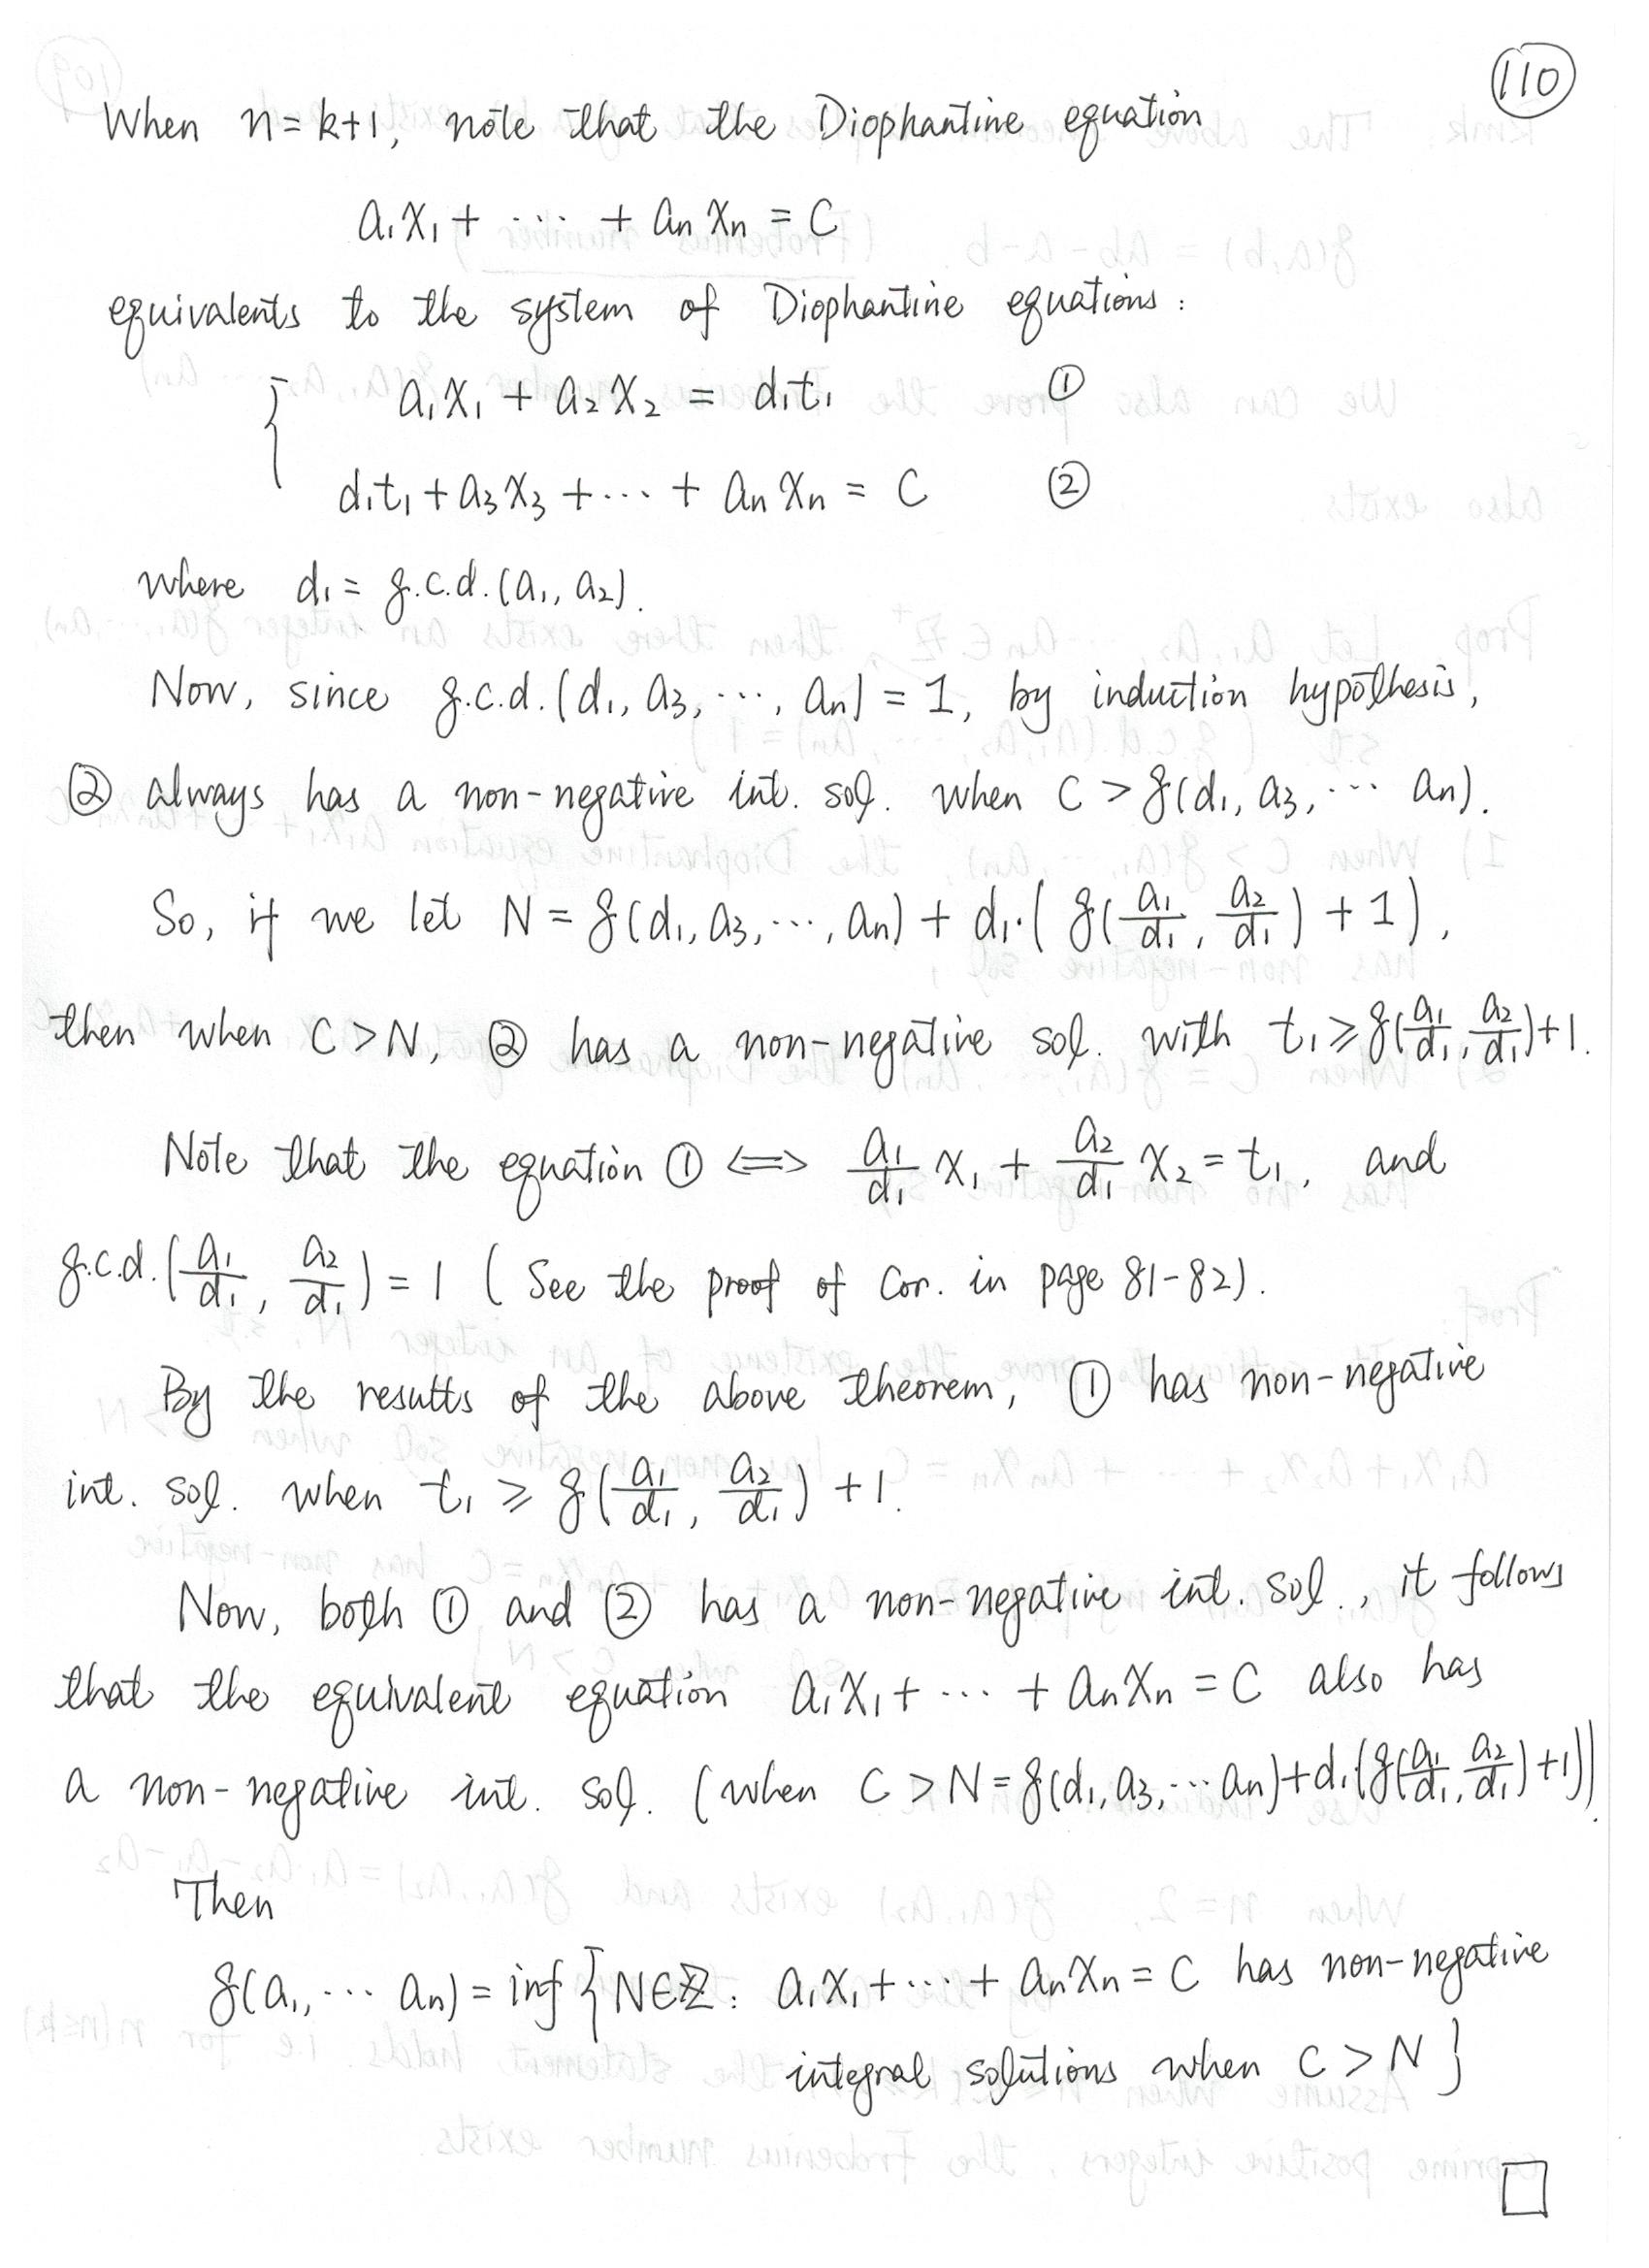 110
When n=k+1, note that the Diophantine equation
a₁x₁ + ⋯ + aₙxₙ = C
equivalents to the system of Diophantine equations:
{ a₁x₁ + a₂x₂ = d₁t₁ ①
d₁t₁ + a₃x₃ + ⋯ + aₙxₙ = C ②
where d₁ = g.c.d.(a₁, a₂).
Now, since g.c.d.(d₁, a₃, ⋯, aₙ) = 1, by induction hypothesis,
② always has a non-negative int. sol. when C > g(d₁, a₃, ⋯ aₙ).
So, if we let N = g(d₁, a₃, ⋯, aₙ) + d₁·( g(a₁/d₁, a₂/d₁) + 1 ),
then when C > N, ② has a non-negative sol. with t₁ ≥ g(a₁/d₁, a₂/d₁)+1.
Note that the equation ① ⟺ a₁/d₁ x₁ + a₂/d₁ x₂ = t₁, and
g.c.d.(a₁/d₁, a₂/d₁) = 1 ( See the proof of Cor. in page 81-82).
By the results of the above theorem, ① has non-negative
int. sol. when t₁ ≥ g(a₁/d₁, a₂/d₁) + 1.
Now, both ① and ② has a non-negative int. sol., it follows
that the equivalent equation a₁x₁ + ⋯ + aₙxₙ = C also has
a non-negative int. sol. (when C > N = g(d₁, a₃, ⋯ aₙ)+d₁(g(a₁/d₁, a₂/d₁)+1)).
Then
g(a₁, ⋯ aₙ) = inf { N∈ℤ : a₁x₁ + ⋯ + aₙxₙ = C has non-negative
integral solutions when C > N }
□